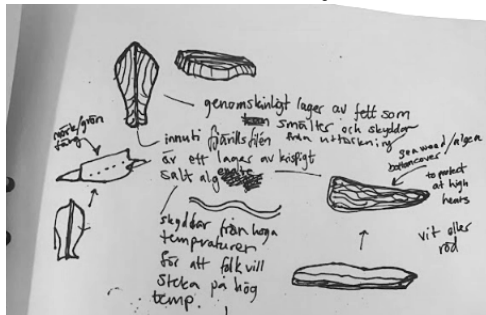 genomskinligt lager av fett som
smälter och skyddar
från uttorkning
inuti fjärilsfilén
är ett lager av krispigt
salt alg
mörk/grön
färg
skyddar från höga
temperaturen
för att folk vill
steka på hög
temp.
seaweed/algea
cover
to protect
at high
heats
vit eller
röd